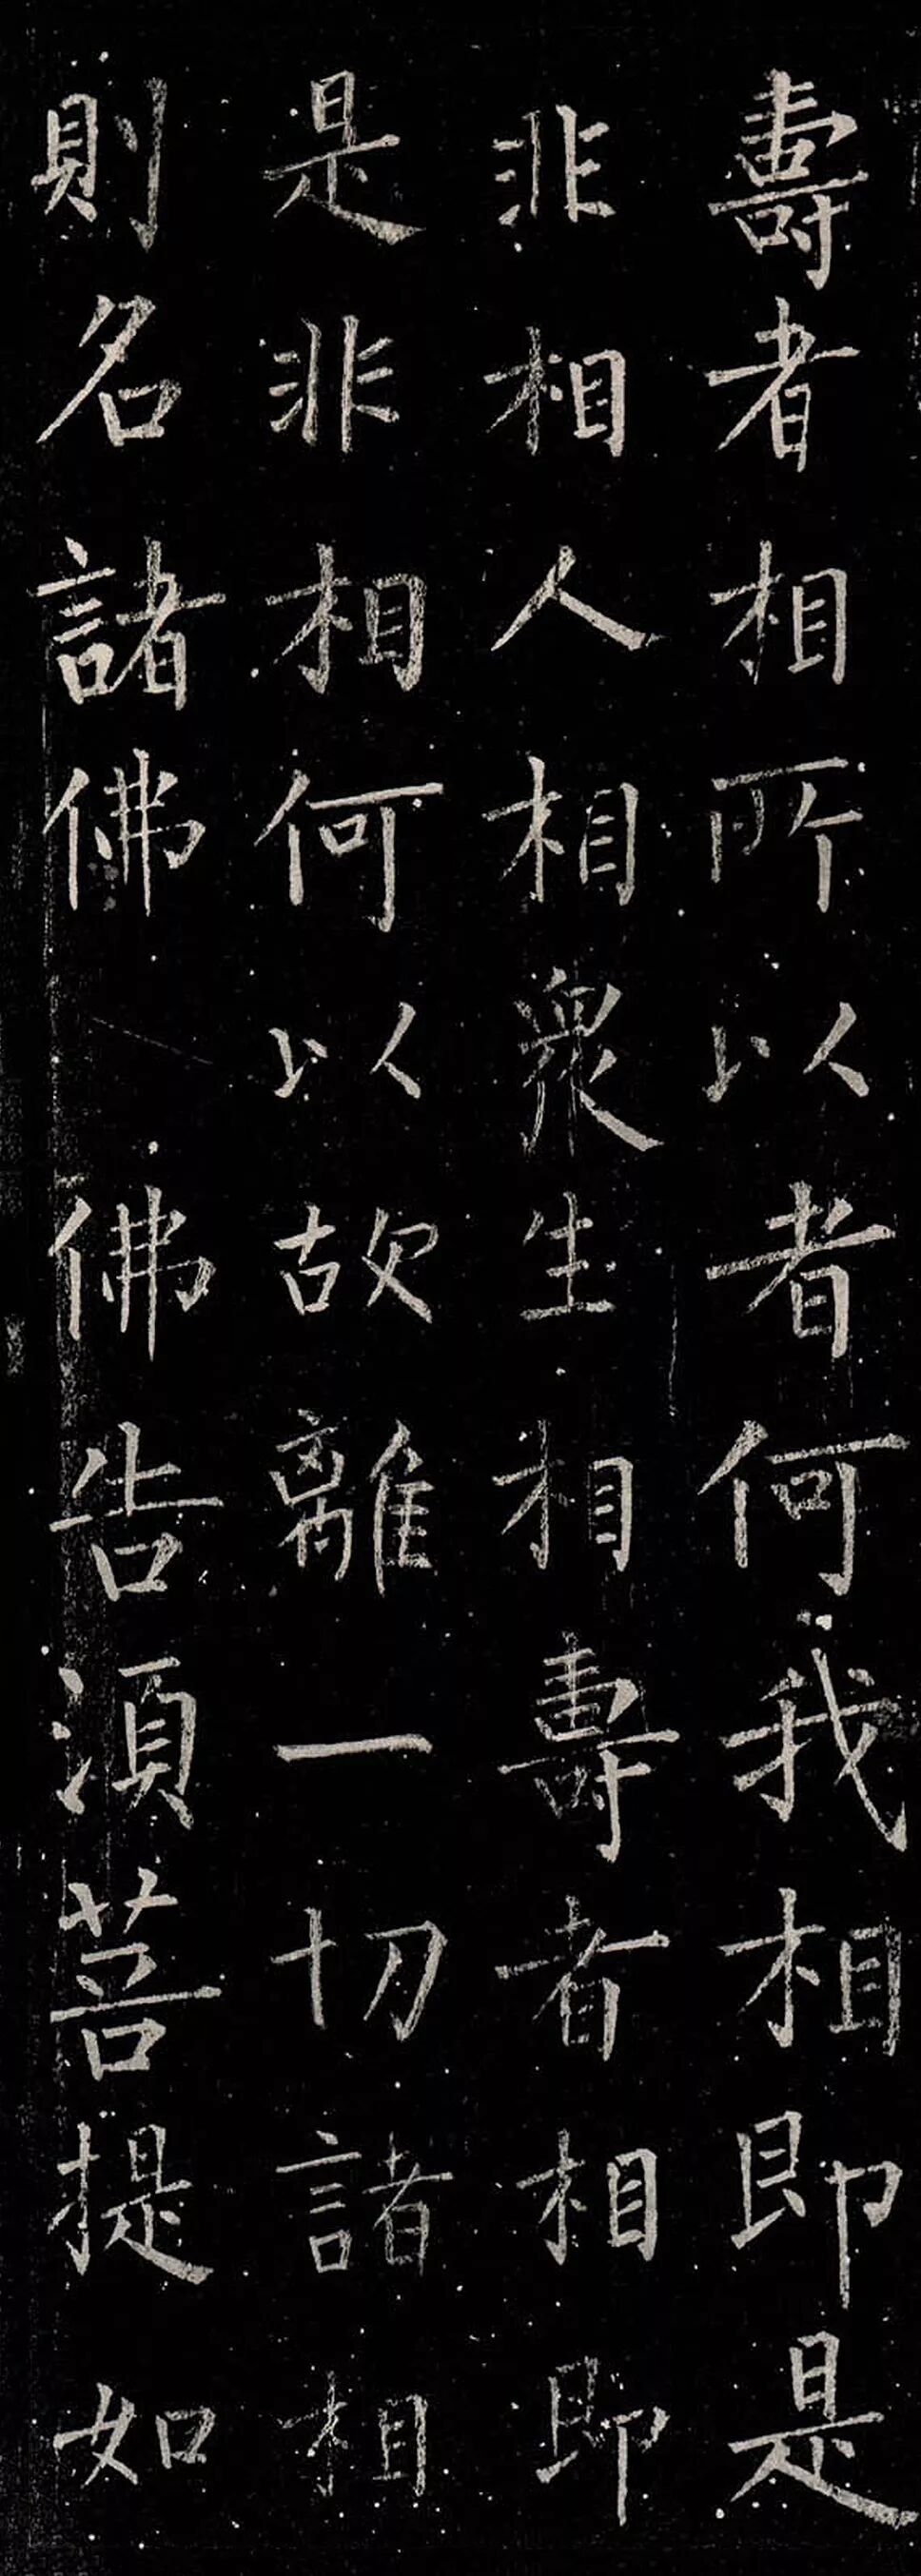 壽者相所以者何我相即是
非相人相衆生相壽者相即
是非相何以故離一切諸相
則名諸佛 佛告須菩提如